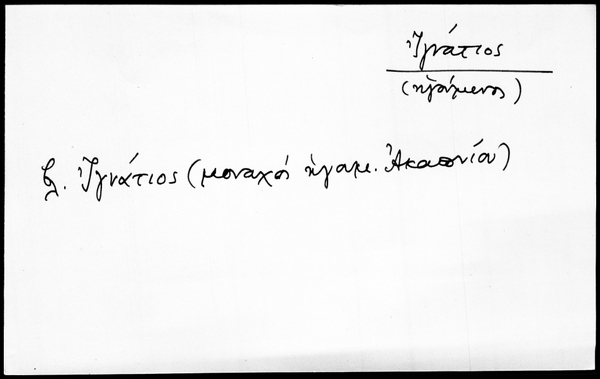 Ἰγνάτιος
(ἡγούμενος)
βλ. Ἰγνάτιος (μοναχός ἡγουμ. Ἀκαπνίου)